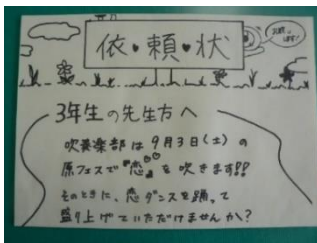 依・頼・状
3年生の先生方へ
吹奏楽部は9月3日(土)の
原フェスで『恋』を吹きます!!
そのときに、恋ダンスを踊って
盛り上げていただけませんか?